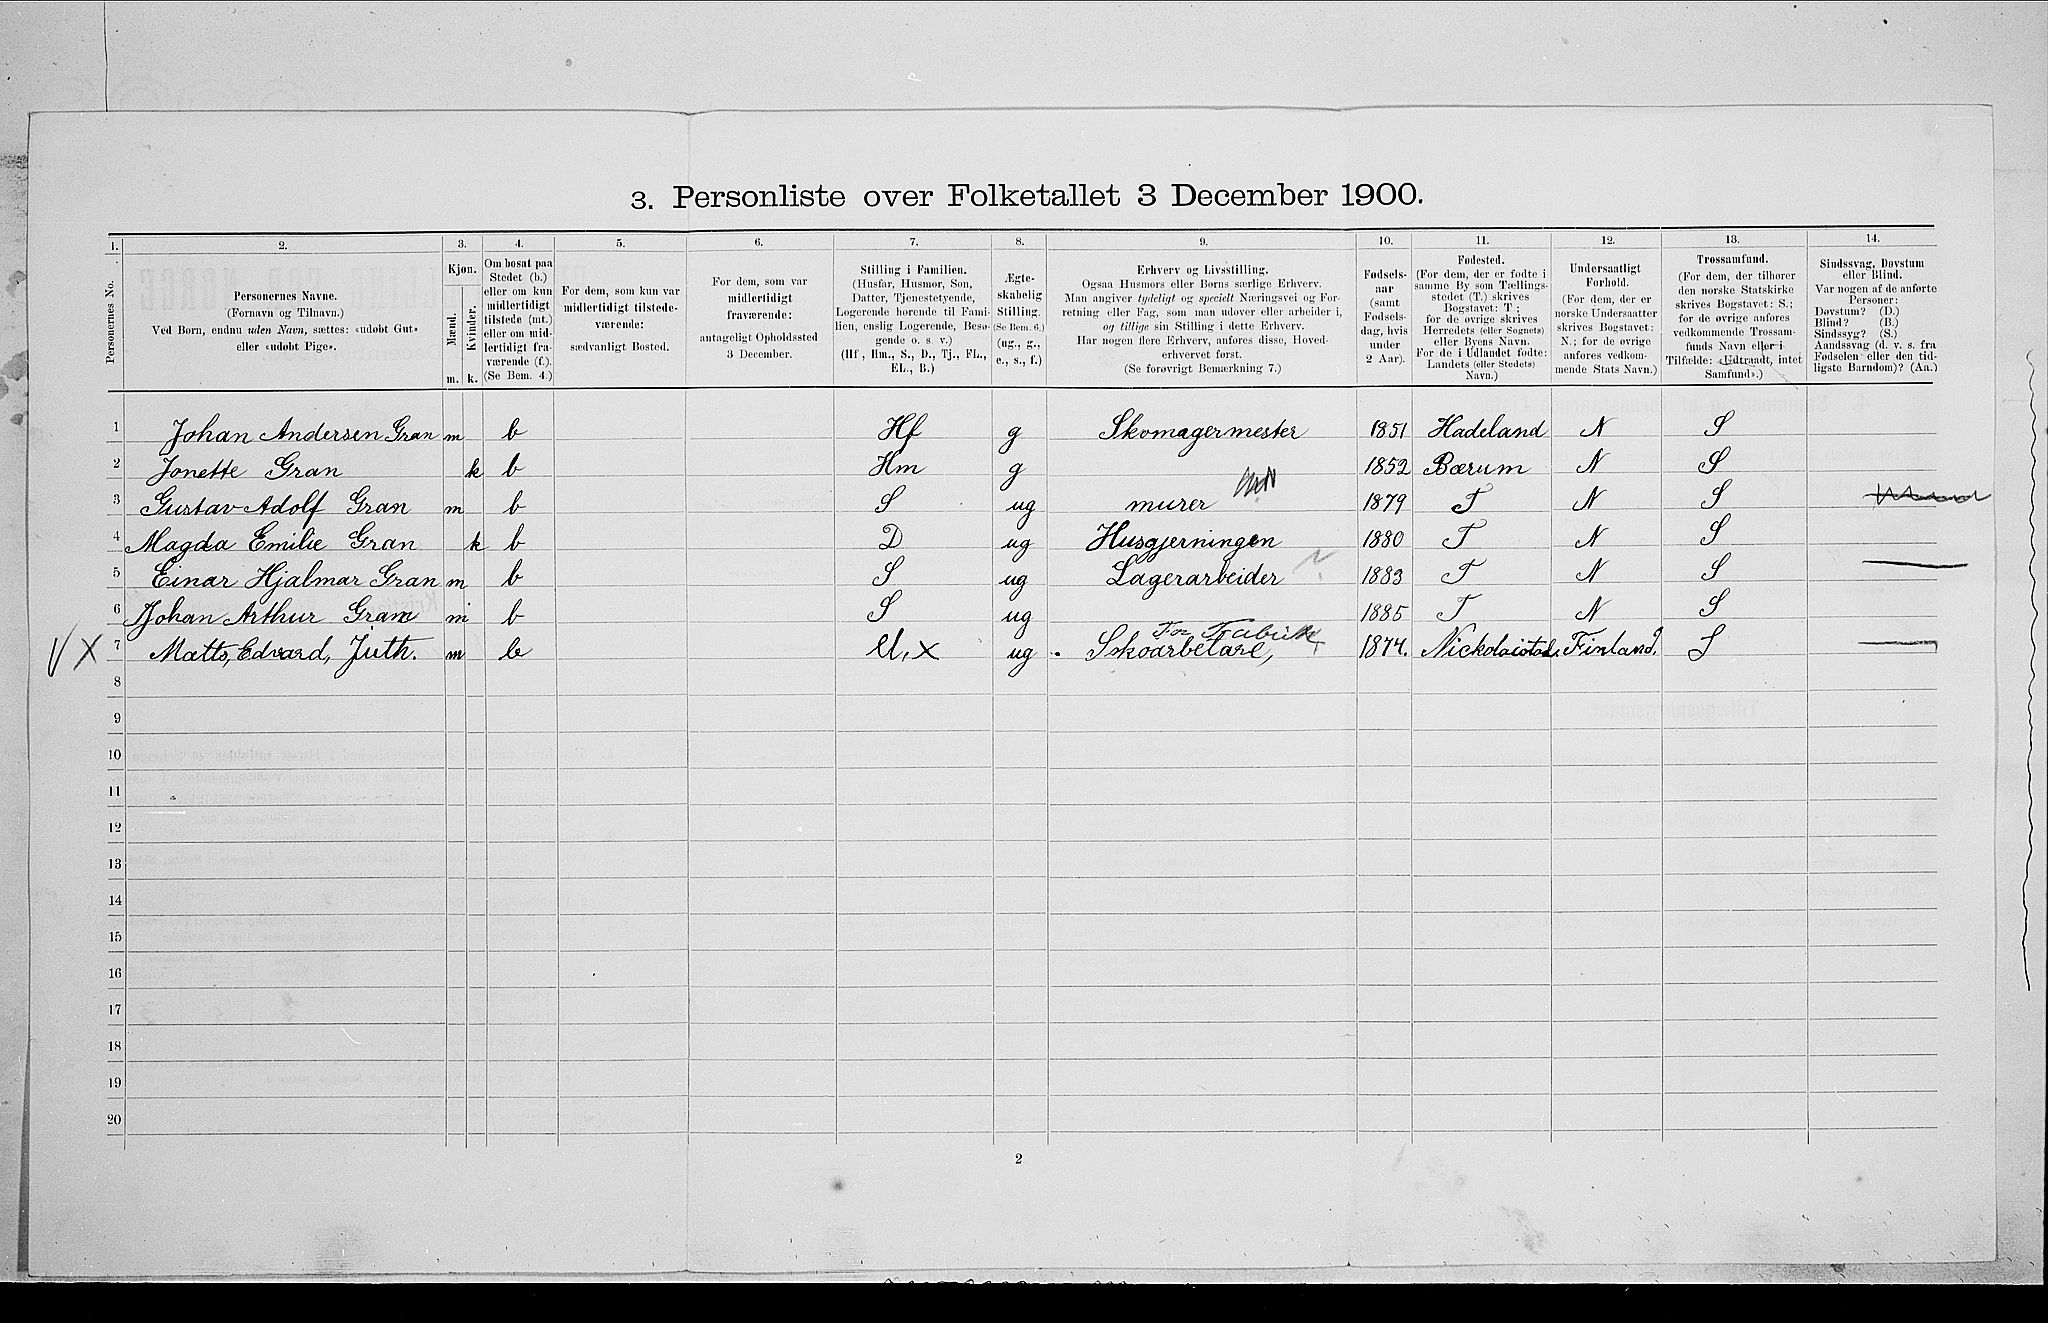 3. Personliste over Folketallet 3 December 1900.
1. 2. 3. 4. 5. 6. 7. 8. 9. 10. 11. 12. 13. 14.
Personernes No.
Personernes Navne.
(Fornavn og Tilnavn.)
Ved Børn, endnu uden Navn, sættes: «udøbt Gut»
eller «udøbt Pige».
Kjøn.
Mænd.
Kvinder.
m. k.
Om bosat paa
Stedet (b.)
eller om kun
midlertidigt
tilstede (mt.)
eller om mid-
lertidigt fra-
værende (f.).
(Se Bem. 4.)
For dem, som kun var
midlertidigt tilstede-
værende:
sædvanligt Bosted.
For dem, som var
midlertidigt
fraværende:
antageligt Opholdssted
3 December.
Stilling i Familien.
(Husfar, Husmor, Søn,
Datter, Tjenestetyende,
Logerende hørende til Fami-
lien, enslig Logerende, Besø-
gende o. s. v.)
(Hf., Hm., S., D., Tj., FL.,
EL., B.)
Ægte-
skabelig
Stilling.
(Se Bem. 6.)
(ug., g.,
e., s., f.)
Erhverv og Livsstilling.
Ogsaa Husmors eller Børns særlige Erhverv.
Man angiver tydeligt og specielt Næringsvei og For-
retning eller Fag, som man udøver eller arbeider i,
og tillige sin Stilling i dette Erhverv.
Har nogen flere Erhverv, anføres disse, Hoved-
erhvervet først.
(Se forøvrigt Bemærkning 7.)
Fødsels-
aar
(samt
Fødsels-
dag, hvis
under
2 Aar).
Fødested.
(For dem, der er fødte i
samme By som Tællings-
stedet (T.) skrives
Bogstavet: T;
for de øvrige skrives
Herredets (eller Sognets)
eller Byens Navn.
For de i Udlandet fødte:
Landets (eller Stedets)
Navn.)
Undersaatligt
Forhold.
(For dem, der er
norske Undersaatter
skrives Bogstavet:
N.; for de øvrige
anføres vedkom-
mende Stats Navn.)
Trossamfund.
(For dem, der tilhører
den norske Statskirke
skrives Bogstavet: S.;
for de øvrige anføres
vedkommende Trossam-
funds Navn eller i
Tilfælde: «Udtraadt, intet
Samfund».)
Sindssvag, Døvstum
eller Blind.
Var nogen af de anførte
Personer:
Døvstum? (D.)
Blind? (B.)
Sindssyg? (S.)
Aandssvag (d. v. s. fra
Fødselen eller den tid-
ligste Barndom)? (Aa.)
1 Johan Andersen Gran m b Hf g Skomagermester 1851 Hadeland N S
2 Jonette Gran k b Hm g 1852 Bærum N S
3 Gustav Adolf Gran m b S ug murer 1879 T N S
4 Magda Emilie Gran k b D ug Husgjerningen 1880 T N S
5 Einar Hjalmar Gran m b S ug Lagerarbeider 1883 T N S
6 Johan Arthur Gram m b S ug 1885 T N S
V X 7 Matts, Edvard, Juth. m b el, X ug Skoarbetare, 1874. Nickolaistad. Finland. S
8
9
10
11
12
13
14
15
16
17
18
19
20
2